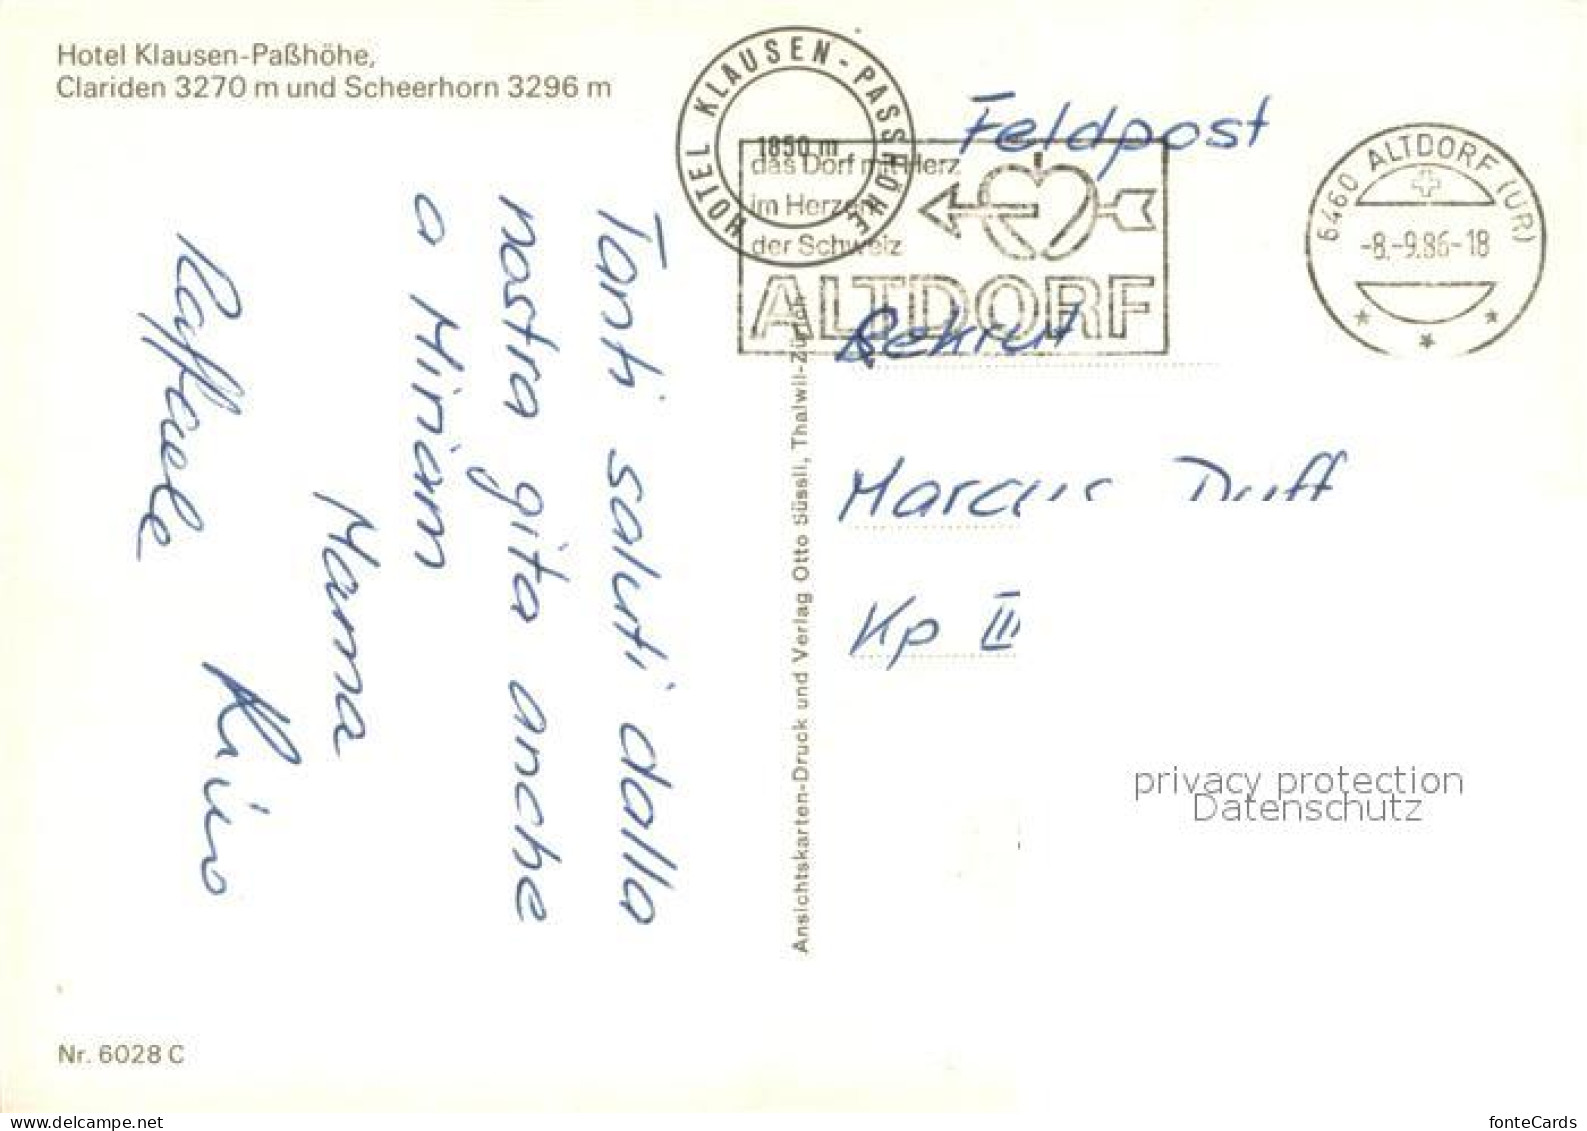 Hotel Klausen-Paßhöhe,
Clariden 3270 m und Scheerhorn 3296 m
HOTEL KLAUSEN-PASSHÖHE
1850 m
das Dorf mit Herz
im Herzen
der Schweiz
ALTDORF
6460 ALTDORF (UR)
-8.-9.86-18
Feldpost
Rekrut
Marcus
Kp III
Tanti saluti dalla
nostra gita anche
a Miriam
Mama
Raffaele
Ansichtskarten-Druck und Verlag Otto Süssli, Thalwil-Zürich
privacy protection
Datenschutz
Nr. 6028 C
www.delcampe.net
fonteCards